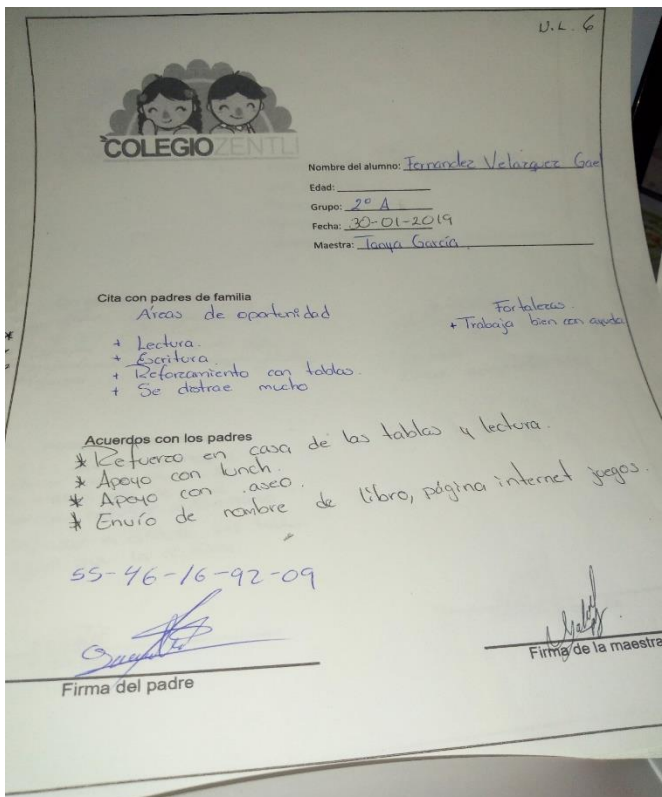 U.L. 6
COLEGIO ZENTLI
Nombre del alumno: Fernandez Velazquez Gael
Edad:
Grupo: 2º A
Fecha: 30-01-2019
Maestra: Tanya García
Cita con padres de familia
Áreas de oportunidad
+ Lectura.
+ Escritura.
+ Reforzamiento con tablas.
+ Se distrae mucho
Fortalezas.
+ Trabaja bien con ayuda
Acuerdos con los padres
* Refuerzo en casa de las tablas y lectura.
* Apoyo con lunch.
* Apoyo con aseo.
* Envío de nombre de libro, página internet juegos.
55-46-16-92-09
Firma del padre
Firma de la maestra